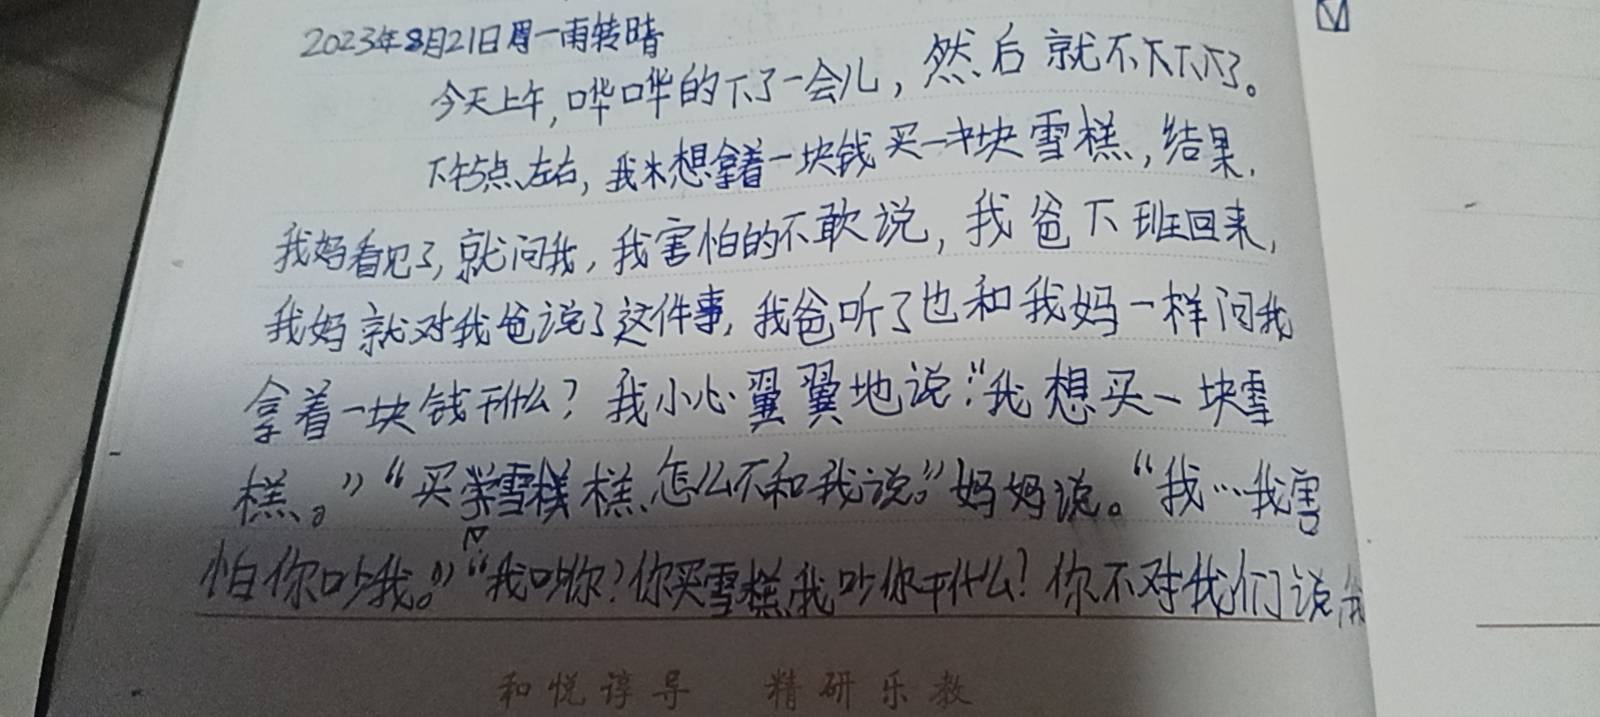 2023年8月21日周一雨转晴
今天上午,哗哗的下了一会儿,然后就不下下下了。
下午5点左右,我本想拿着一块钱买一块雪糕,结果,
我妈看见了,就问我,我害怕的不敢说,我爸下班回来,
我妈就对我爸说了这件事,我爸听了也和我妈一样问我
拿着一块钱干什么?我小心翼翼地说:"我想买一块雪
糕。""买雪糕糕怎么不和我说。"妈妈说。"我…我害
怕你吵我。""我吵你?你买雪糕我吵你干什么!你不对我们说,我
和悦谆导 精研乐教